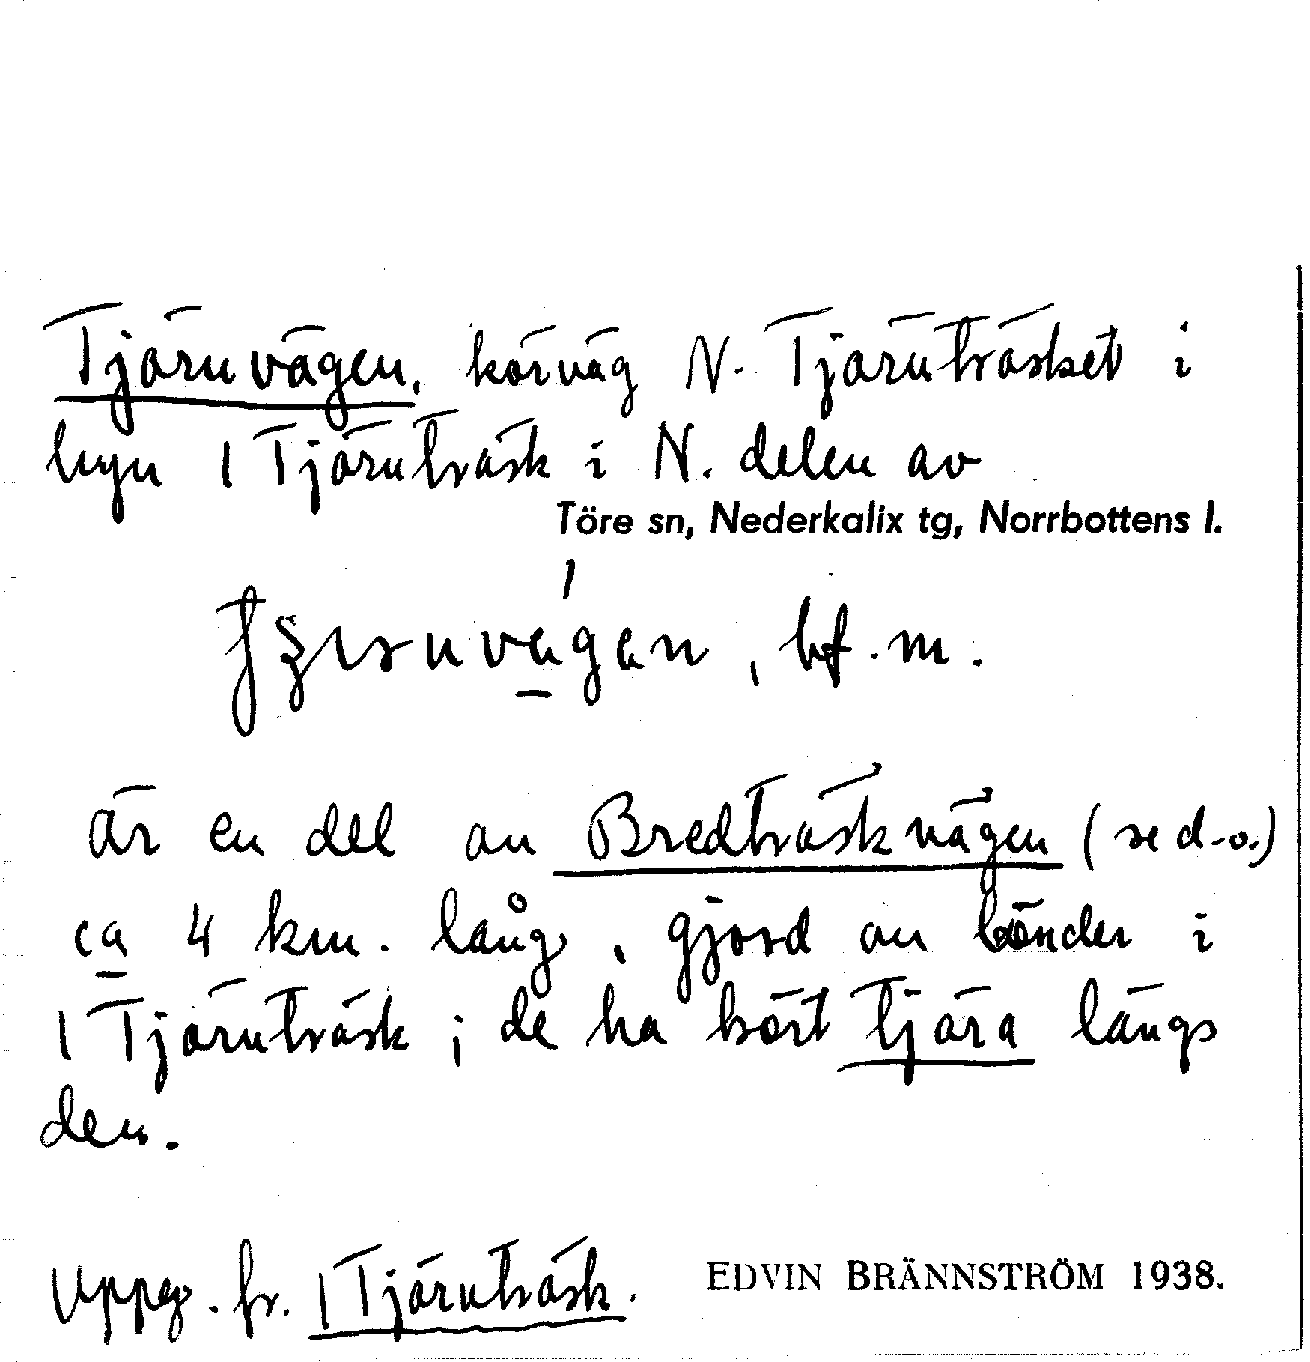 Tjärnvägen, körväg N. Tjärnträsket i
byn 1 Tjärnträsk i N. delen av
Töre sn, Nederkalix tg, Norrbottens l.
bf. m.
är en del av Bredträskvägen (se d.o.)
ca 4 km. lång, gjord av bönder i
1 Tjärnträsk; de ha kört tjära längs
den.
Uppg. fr. 1 Tjärnträsk. EDVIN BRÄNNSTRÖM 1938.